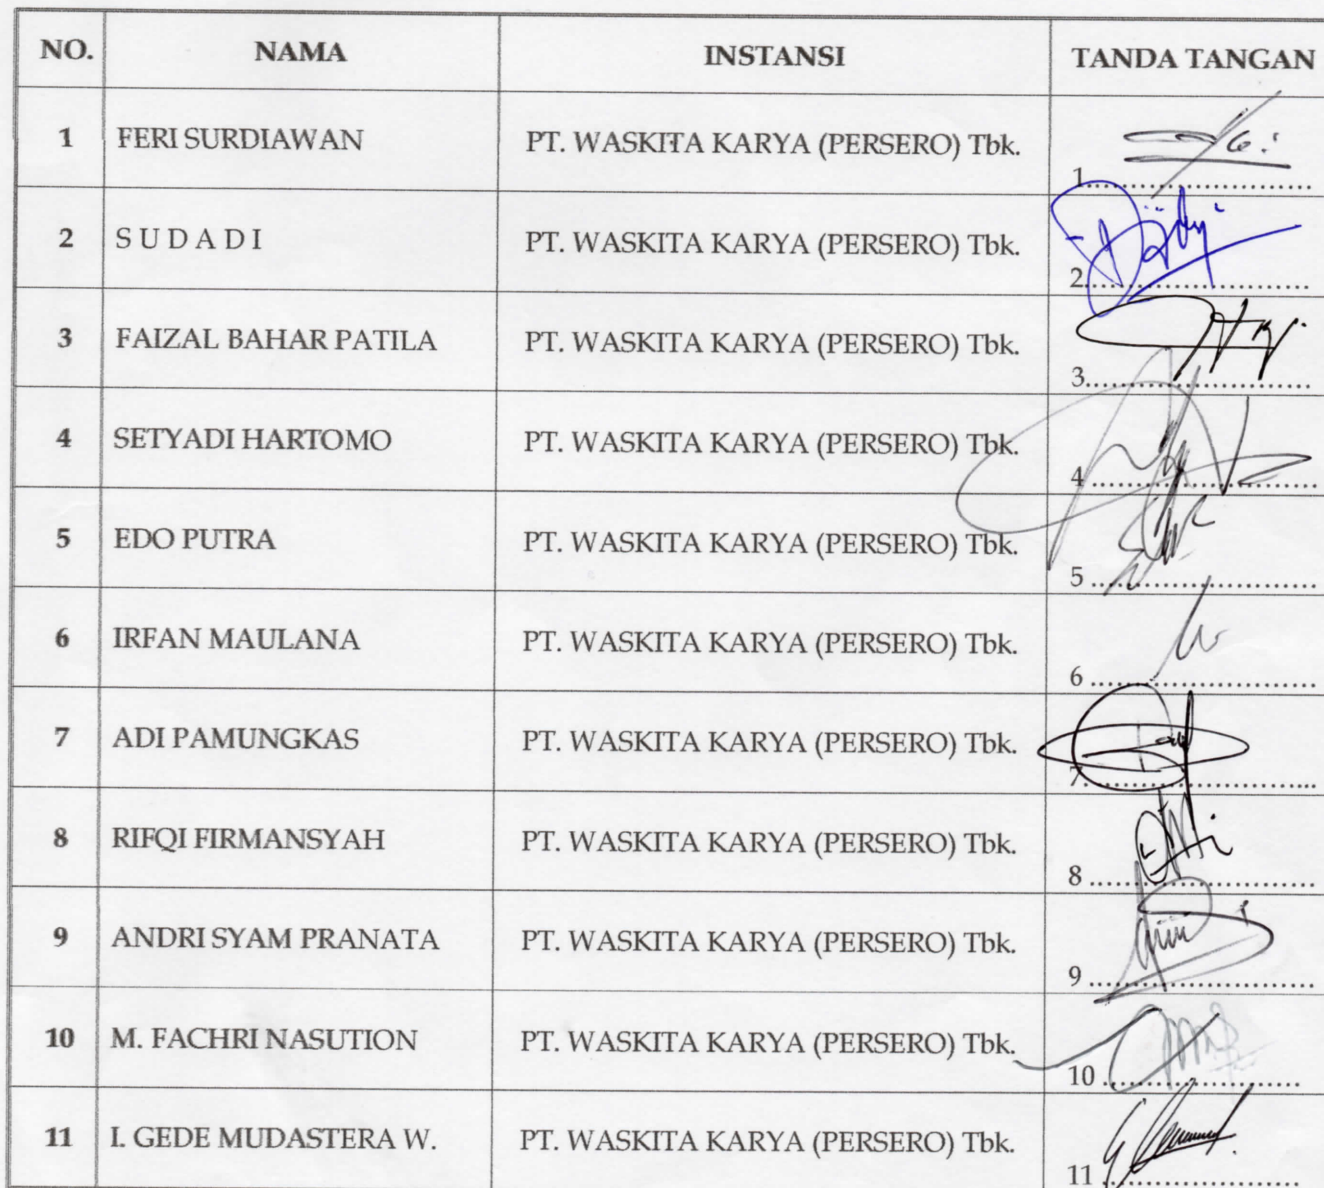 NO. NAMA INSTANSI TANDA TANGAN
1 FERI SURDIAWAN PT. WASKITA KARYA (PERSERO) Tbk. 1..............................
2 S U D A D I PT. WASKITA KARYA (PERSERO) Tbk. 2..............................
3 FAIZAL BAHAR PATILA PT. WASKITA KARYA (PERSERO) Tbk. 3..............................
4 SETYADI HARTOMO PT. WASKITA KARYA (PERSERO) Tbk. 4..............................
5 EDO PUTRA PT. WASKITA KARYA (PERSERO) Tbk. 5..............................
6 IRFAN MAULANA PT. WASKITA KARYA (PERSERO) Tbk. 6..............................
7 ADI PAMUNGKAS PT. WASKITA KARYA (PERSERO) Tbk. 7..............................
8 RIFQI FIRMANSYAH PT. WASKITA KARYA (PERSERO) Tbk. 8..............................
9 ANDRI SYAM PRANATA PT. WASKITA KARYA (PERSERO) Tbk. 9..............................
10 M. FACHRI NASUTION PT. WASKITA KARYA (PERSERO) Tbk. 10............................
11 I. GEDE MUDASTERA W. PT. WASKITA KARYA (PERSERO) Tbk. 11............................